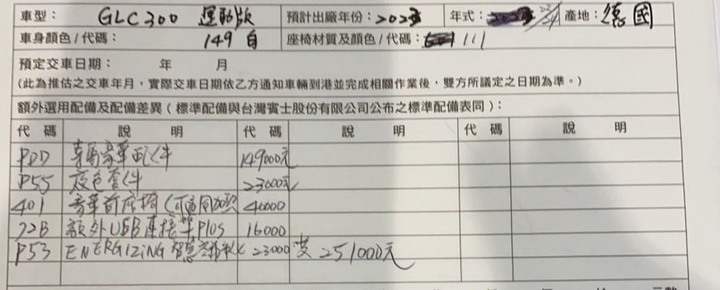 車型： GLC300 運動版 預計出廠年份：2023 年式： 產地：德國
車身顏色/代碼： 149白 座椅材質及顏色/代碼： 111
預定交車日期： 年 月
(此為推估之交車年月，實際交車日期依乙方通知車輛到港並完成相關作業後，雙方所議定之日期為準。)
額外選用配備及配備差異(標準配備與台灣賓士股份有限公司公布之標準配備表同)：
代碼 說 明 代 碼 說 明 代 碼 說 明
PDD 專屬豪華配件 149000元
P55 夜色套件 23000元
401 豪華前座椅 40000
72B 額外USB連接埠Plus 16000
P53 ENERGIZING 智慧 23000 共 251000元